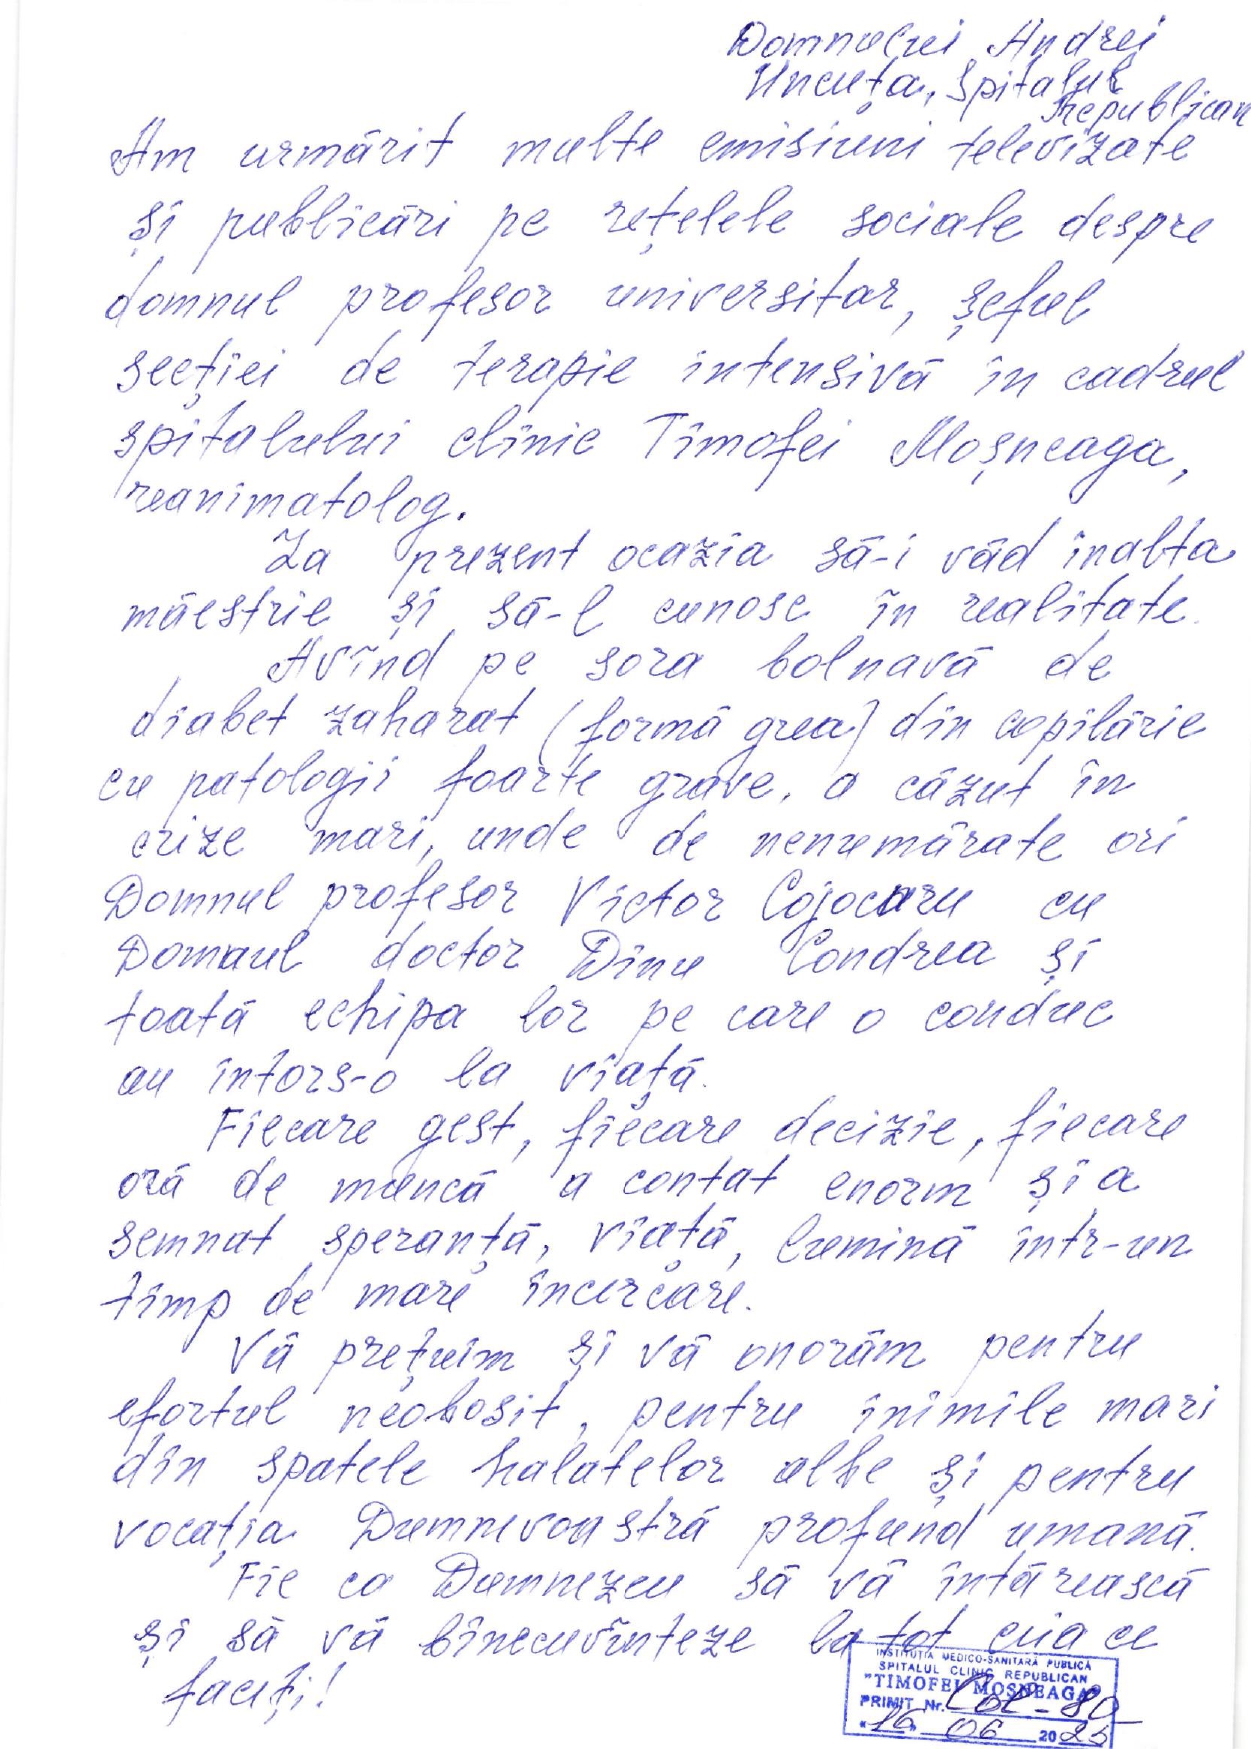 Domnului Andrei
Uncuța, Spitalul
Republican
Am urmărit multe emisiuni televizate
și publicări pe rețelele sociale despre
domnul profesor universitar, șeful
secției de terapie intensivă în cadrul
spitalului clinic Timofei Moșneaga,
reanimatolog.
La prezent ocazia să-i văd înalta
măestrie și să-l cunosc în realitate.
Avînd pe sora bolnavă de
diabet zaharat (formă grea) din copilărie
cu patologii foarte grave, a căzut în
crize mari, unde de nenumărate ori
Domnul profesor Victor Cojocaru cu
Domnul doctor Dinu Condrea și
toată echipa lor pe care o conduc
au întors-o la viață.
Fiecare gest, fiecare decizie, fiecare
oră de muncă a contat enorm și a
semnat speranță, viață, lumină într-un
timp de mare încercare.
Vă prețuim și vă onorăm pentru
efortul neobosit, pentru inimile mari
din spatele halatelor albe și pentru
vocația Dumnevoastră profund umană.
Fie ca Dumnezeu să vă întărească
și să vă binecuvînteze la tot ceia ce
faceți!
INSTITUȚIA MEDICO-SANITARĂ PUBLICĂ
SPITALUL CLINIC REPUBLICAN
"TIMOFEI MOȘNEAGA"
PRIMIT Nr. Col-80
"16" 06 2025